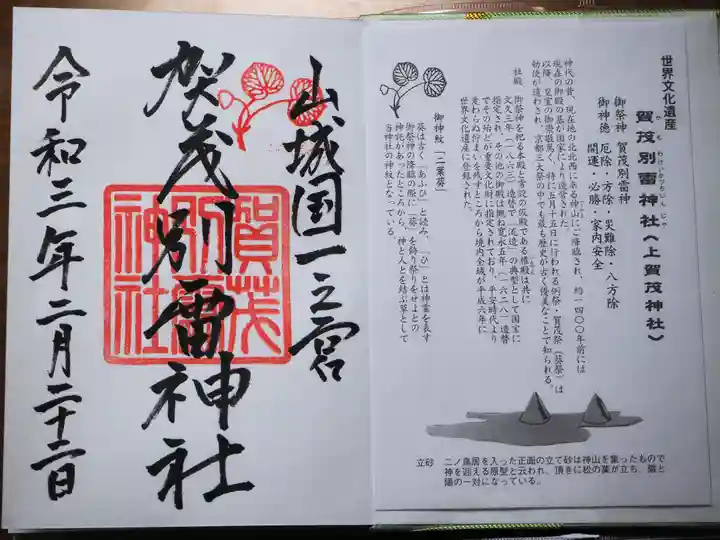 山城国一之宮
賀茂別雷神社
令和三年二月二十二日
賀茂
別雷
神社
世界文化遺産
賀茂別雷神社(上賀茂神社)
御祭神 賀茂別雷神
御神徳 厄除・方除・災難除・八方除
開運・必勝・家内安全
神代の昔、現在地の北北西にある神山にご降臨され、約一四〇〇年前には
現在の御殿の基が国家により造営された。
以降、皇室の御崇敬篤く、特に五月十五日に行われる例祭・賀茂祭(葵祭)は
勅使が遣わされ、京都三大祭の中でも最も歴史が古く優美なことで知られる。
社殿
御祭神を祀る本殿と常設の仮殿である権殿は共に
文久三年(一八六三)造替で「流造」の典型として国宝に
指定され、その他の御殿は概ね寛永五年(一六二八)造替
でその殆どが重要文化財に指定されており、平安時代より
変わらぬ佇まいを残すところから境内全域が平成六年に
世界文化遺産に登録された。
御神紋「二葉葵」
葵は古く「あふひ」と読み、「ひ」とは神霊を表す
御祭神の降臨の際に「葵」を飾り祭りをせよとの
神託があったところから、神と人とを結ぶ草として
当神社の神紋となっている。
立砂 二ノ鳥居を入った正面の立て砂は神山を象ったもので
神を迎える原型と云われ、頂きに松の葉が立ち、陰と
陽の一対になっている。